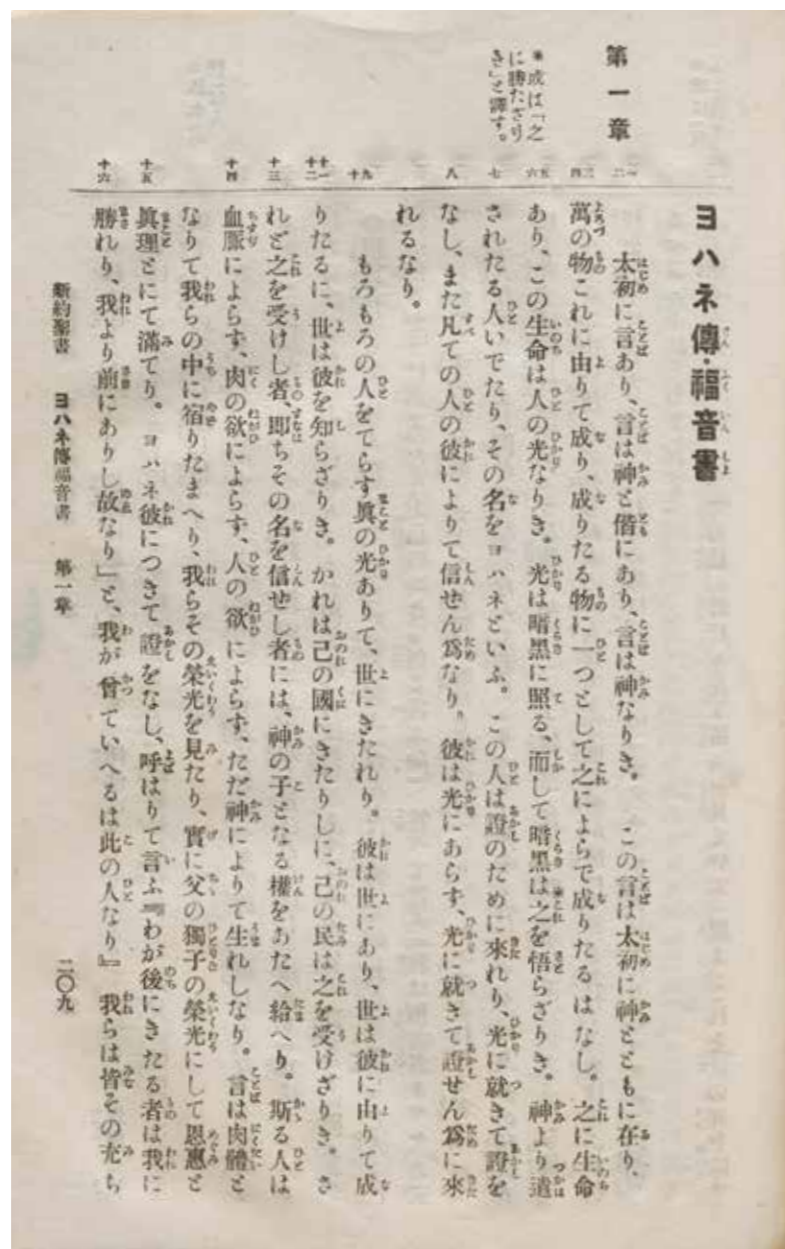 第一章
*或は「之
に勝たざり
き」と譯す。
ヨハネ傳福音書
一二
三四
五六
七
八
九十
十一十二
十三
十四
十五
十六
太初に言あり、言は神と偕にあり、言は神なりき。この言は太初に神とともに在り、
萬の物これに由りて成り、成りたる物に一つとして之によらで成りたるはなし。之に生命
あり、この生命は人の光なりき。光は暗黑に照る、而して暗黑は*之を悟らざりき。神より遣
されたる人いでたり、その名をヨハネといふ。この人は證のために來れり、光に就きて證を
なし、また凡ての人の彼によりて信ぜん爲なり。彼は光にあらず、光に就きて證せん爲に來
れるなり。
もろもろの人をてらす眞の光ありて、世にきたれり。彼は世にあり、世は彼に由りて成
りたるに、世は彼を知らざりき。かれは己の國にきたりしに、己の民は之を受けざりき。さ
れど之を受けし者、即ちその名を信ぜし者には、神の子となる權をあたへ給へり。斯る人は
血脈によらず、肉の欲によらず、人の欲によらず、ただ神によりて生れしなり。言は肉體と
なりて我らの中に宿りたまへり、我らその榮光を見たり、實に父の獨子の榮光にして恩惠と
眞理とにて滿てり。ヨハネ彼につきて證をなし、呼はりて言ふ『「わが後にきたる者は我に
勝れり、我より前にありし故なり」と、我が曾ていへるは此の人なり』我らは皆その充ち
新約聖書 ヨハネ傳福音書 第一章 二〇九